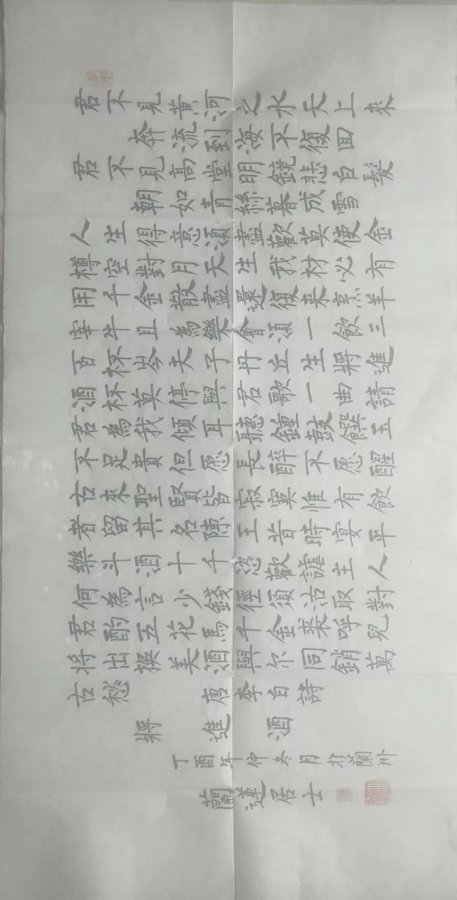 君不見黃河之水天上來
奔流到海不復回
君不見高堂明鏡悲白髮
朝如青絲暮成雪
人生得意須盡歡莫使金
樽空對月天生我材必有
用千金散盡還復來烹羊
宰牛且為樂會須一飲三
百杯岑夫子丹丘生將進
酒杯莫停與君歌一曲請
君為我傾耳聽鐘鼓饌玉
不足貴但愿長醉不愿醒
古來聖賢皆寂寞惟有飲
者留其名陳王昔時宴平
樂斗酒十千恣歡謔主人
何為言少錢徑須沽取對
君酌五花馬千金裘呼兒
將出換美酒與尔同銷萬
古愁 唐李白詩
將進酒
丁酉年仲冬月於蘭州
蘭蓮居士